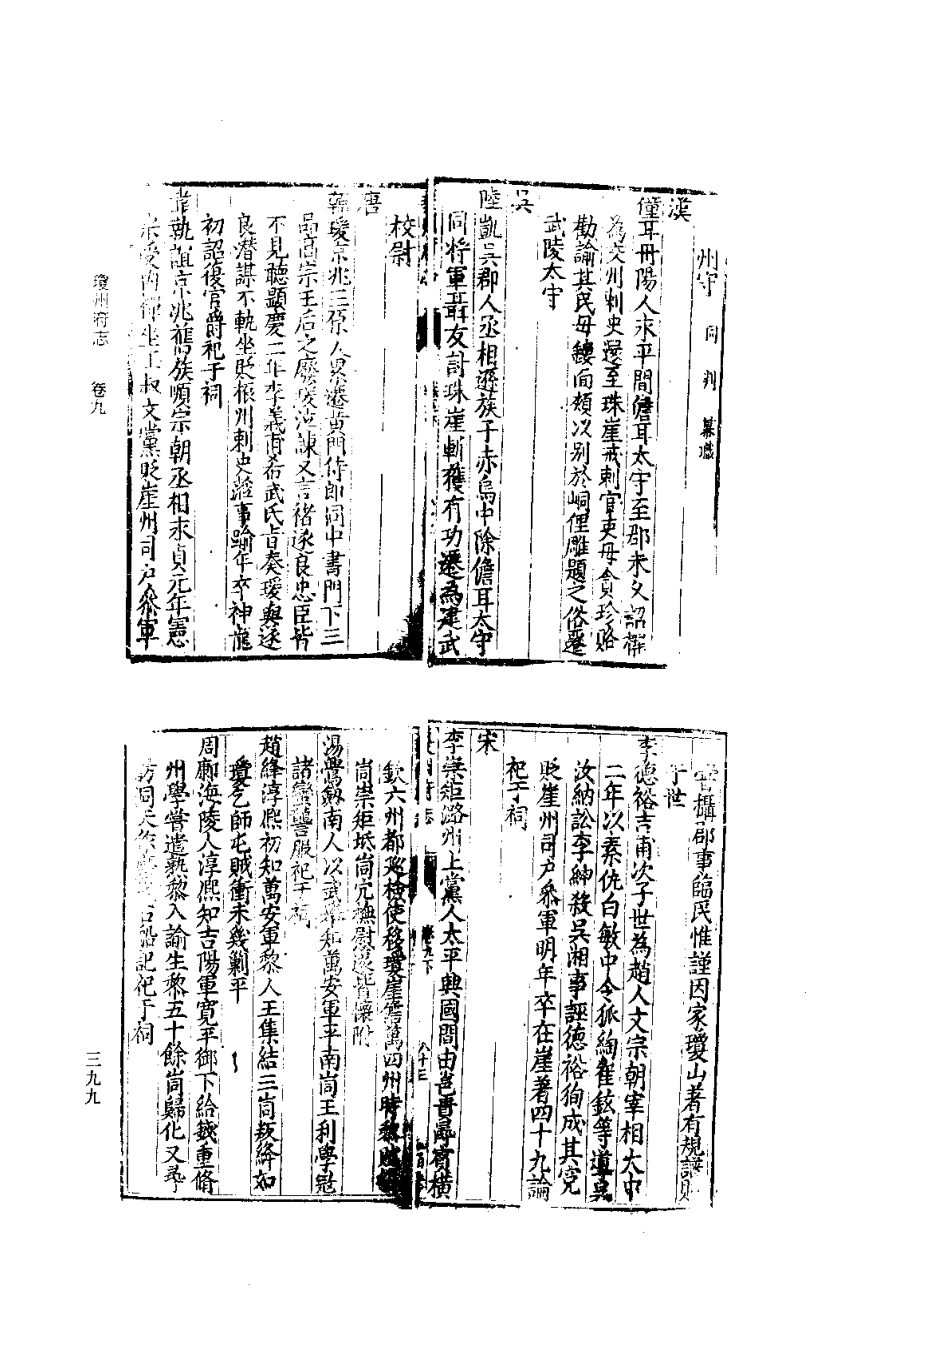 州守 同判 纂職
漢
僮耳丹陽人永平間儋耳太守至郡未久詔擢
為交州刺史還至珠崖戒敕官吏毋貪珍賂
勸諭其民毋鏤面頰以别於峒俚雕題之俗遷
武陵太守
吳
陸凱吳郡人丞相遜族子赤烏中除儋耳太守
同將軍聶友討珠崖斬獲有功遷為建武
校尉
唐
韓瑗京兆三原人累遷黃門侍郎同中書門下三
品高宗王后之廢瑗泣諫又言褚遂良忠臣皆
不見聽顯慶二年李義甫希武氏旨奏瑗與遂
良潛謀不軌坐貶振州刺史逾年卒神龍
初詔復官爵祀于祠
韋執誼京兆舊族順宗朝丞相永貞元年憲
宗受內禪坐王叔文黨貶崖州司戶參軍
嘗攝郡事臨民惟謹因家瓊山著有規譜貽
于世
李德裕吉甫次子世為趙人文宗朝宰相大中
二年以素仇白敏中令狐綯崔鉉等導吳
汝納訟李紳殺吳湘事誣德裕徇成其冤
貶崖州司戶參軍明年卒在崖著四十九論
祀于祠
宋
李崇矩潞州上黨人太平興國間由邕貴潯賓橫
欽六州都巡檢使移瓊崖儋萬四州時黎賊
峒崇矩抵峒穴撫慰遂皆懷附
湯鷽劔南人以武 知萬安軍平南峒王利學冠
諸蠻讋服祀于祠
趙絳淳熙初知萬安軍黎人王集結三峒叛絳如
瓊乞師屯賊衝未幾剿平
周鄜海陵人淳熙知吉陽軍寬平御下給錢重脩
州學嘗遣熟黎入諭生黎五十餘峒歸化又尋
訪洞天 石船記祀于祠
瓊州府志 卷九
三九九